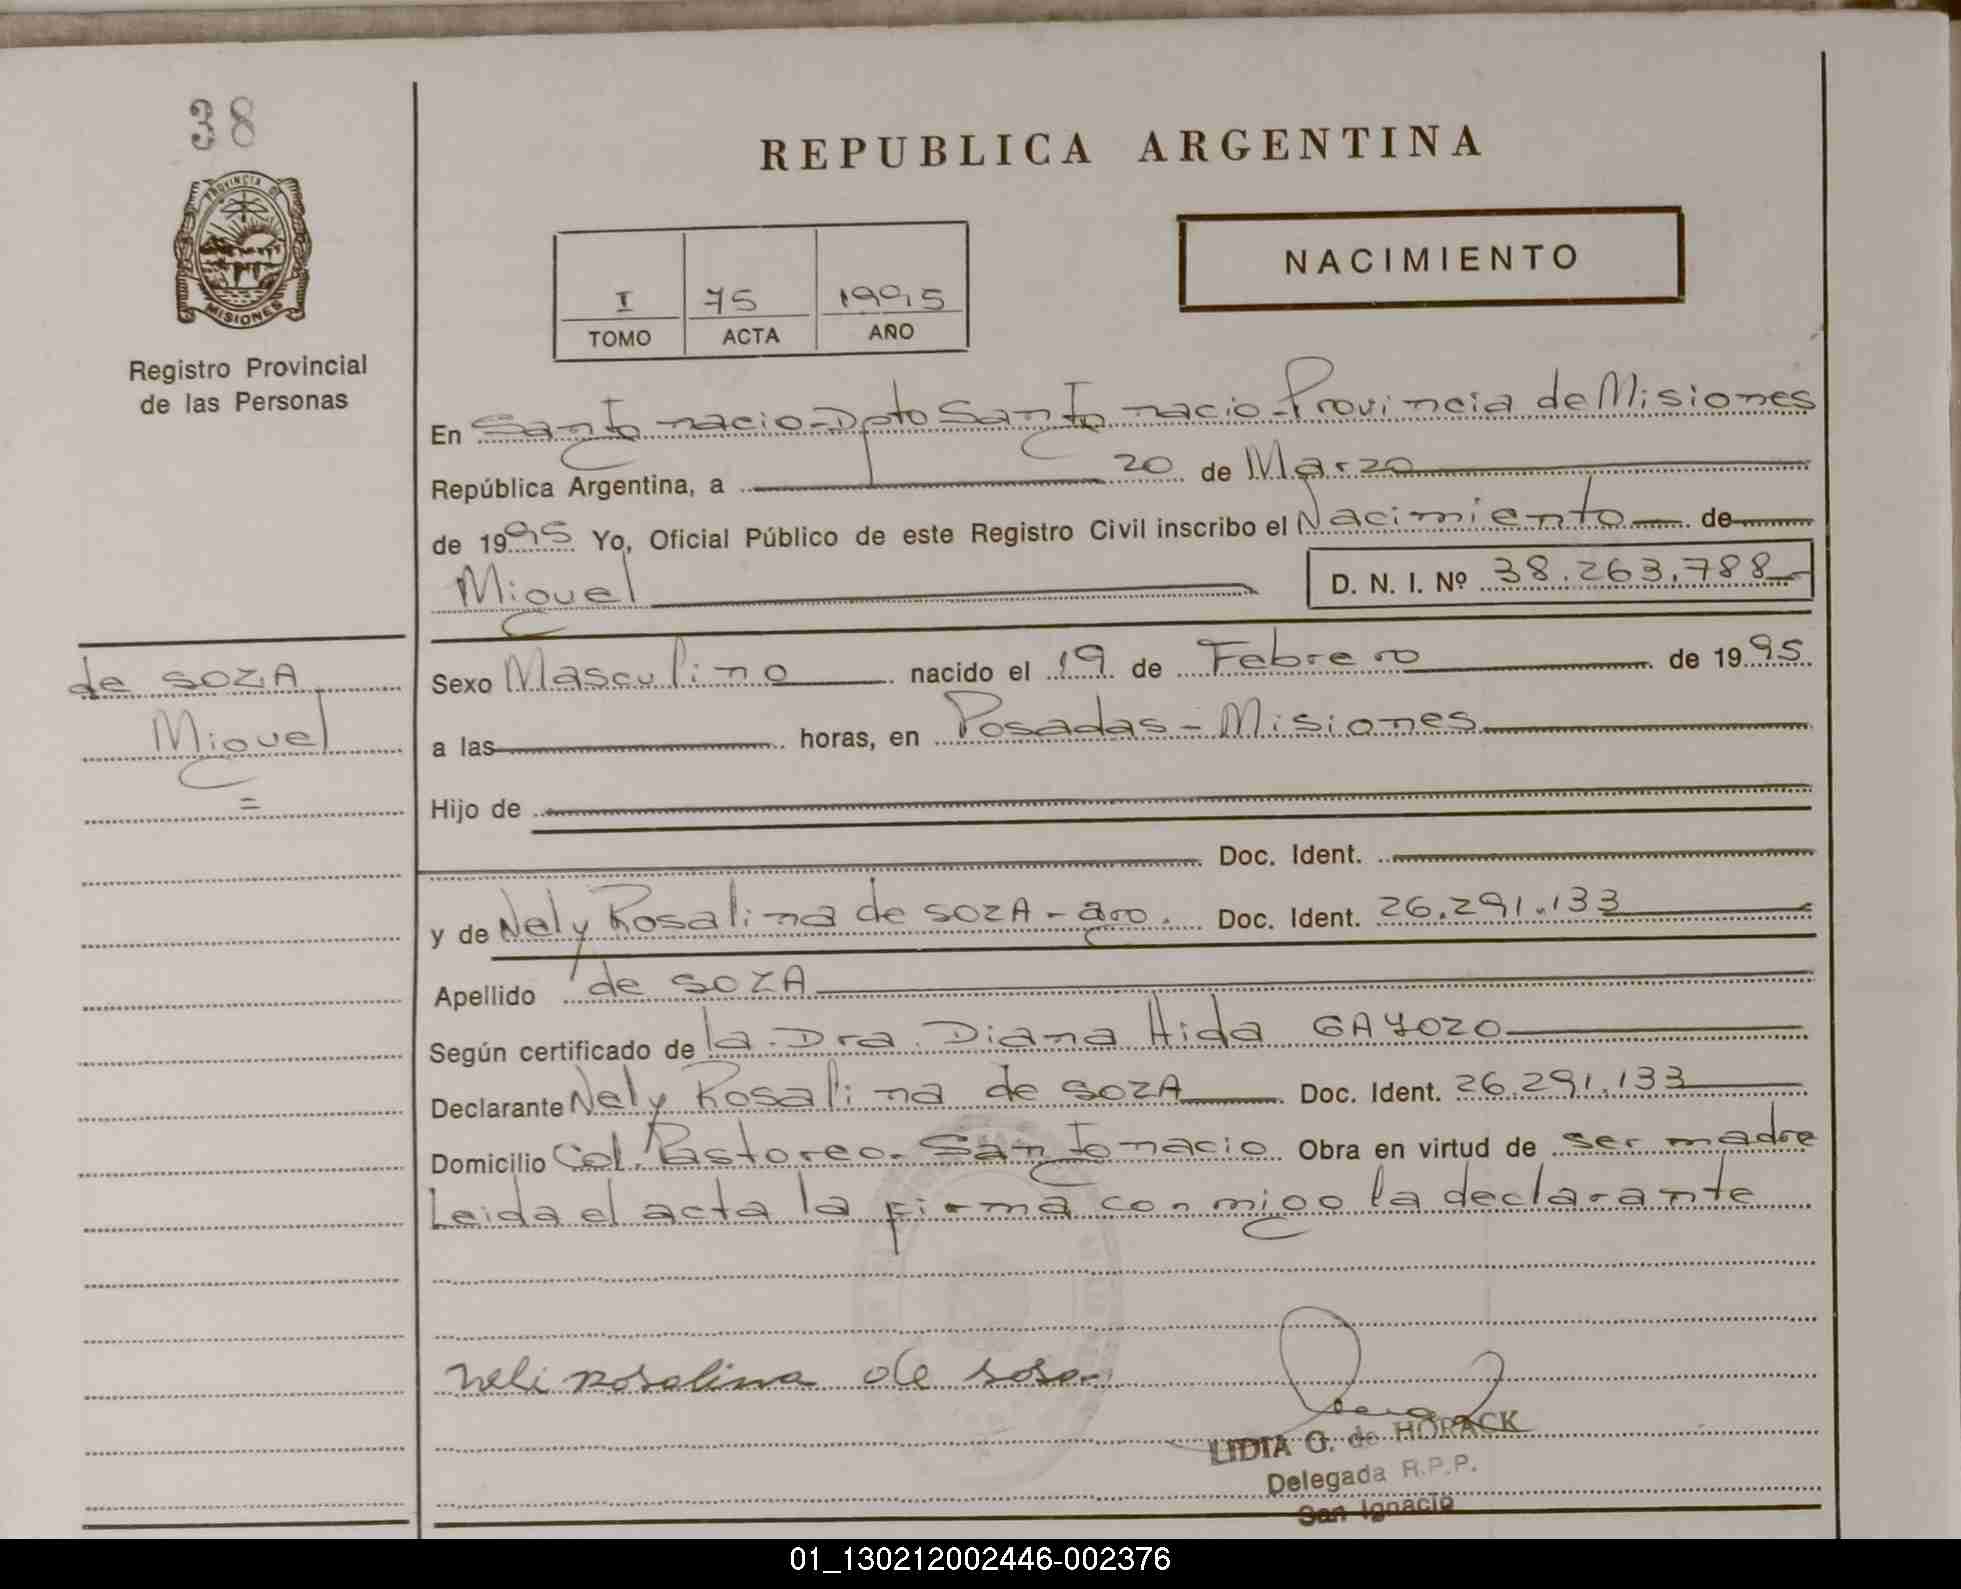 38
PROVINCIA DE
MISIONES
Registro Provincial
de las Personas
REPUBLICA ARGENTINA
NACIMIENTO
I 75 1995
TOMO ACTA AÑO
En San Ignacio - Dpto San Ignacio - Provincia de Misiones
República Argentina, a 20 de Marzo
de 1995 Yo, Oficial Público de este Registro Civil inscribo el Nacimiento de
Miguel D. N. I. Nº 38.263.788
de SOZA
Miguel
=
Sexo Masculino nacido el 19 de Febrero de 1995
a las horas, en Posadas - Misiones
Hijo de
Doc. Ident.
y de Nely Rosalina de SOZA - arg. Doc. Ident. 26.291.133
Apellido de SOZA
Según certificado de la Dra. Diana Aida GAYOZO
Declarante Nely Rosalina de SOZA Doc. Ident. 26.291.133
Domicilio Col. Pastoreo. San Ignacio Obra en virtud de ser madre
Leida el acta la firma conmigo la declarante
neli rosalina de sosa
LIDIA G. de HORACK
Delegada R.P.P.
San Ignacio
01_130212002446-002376